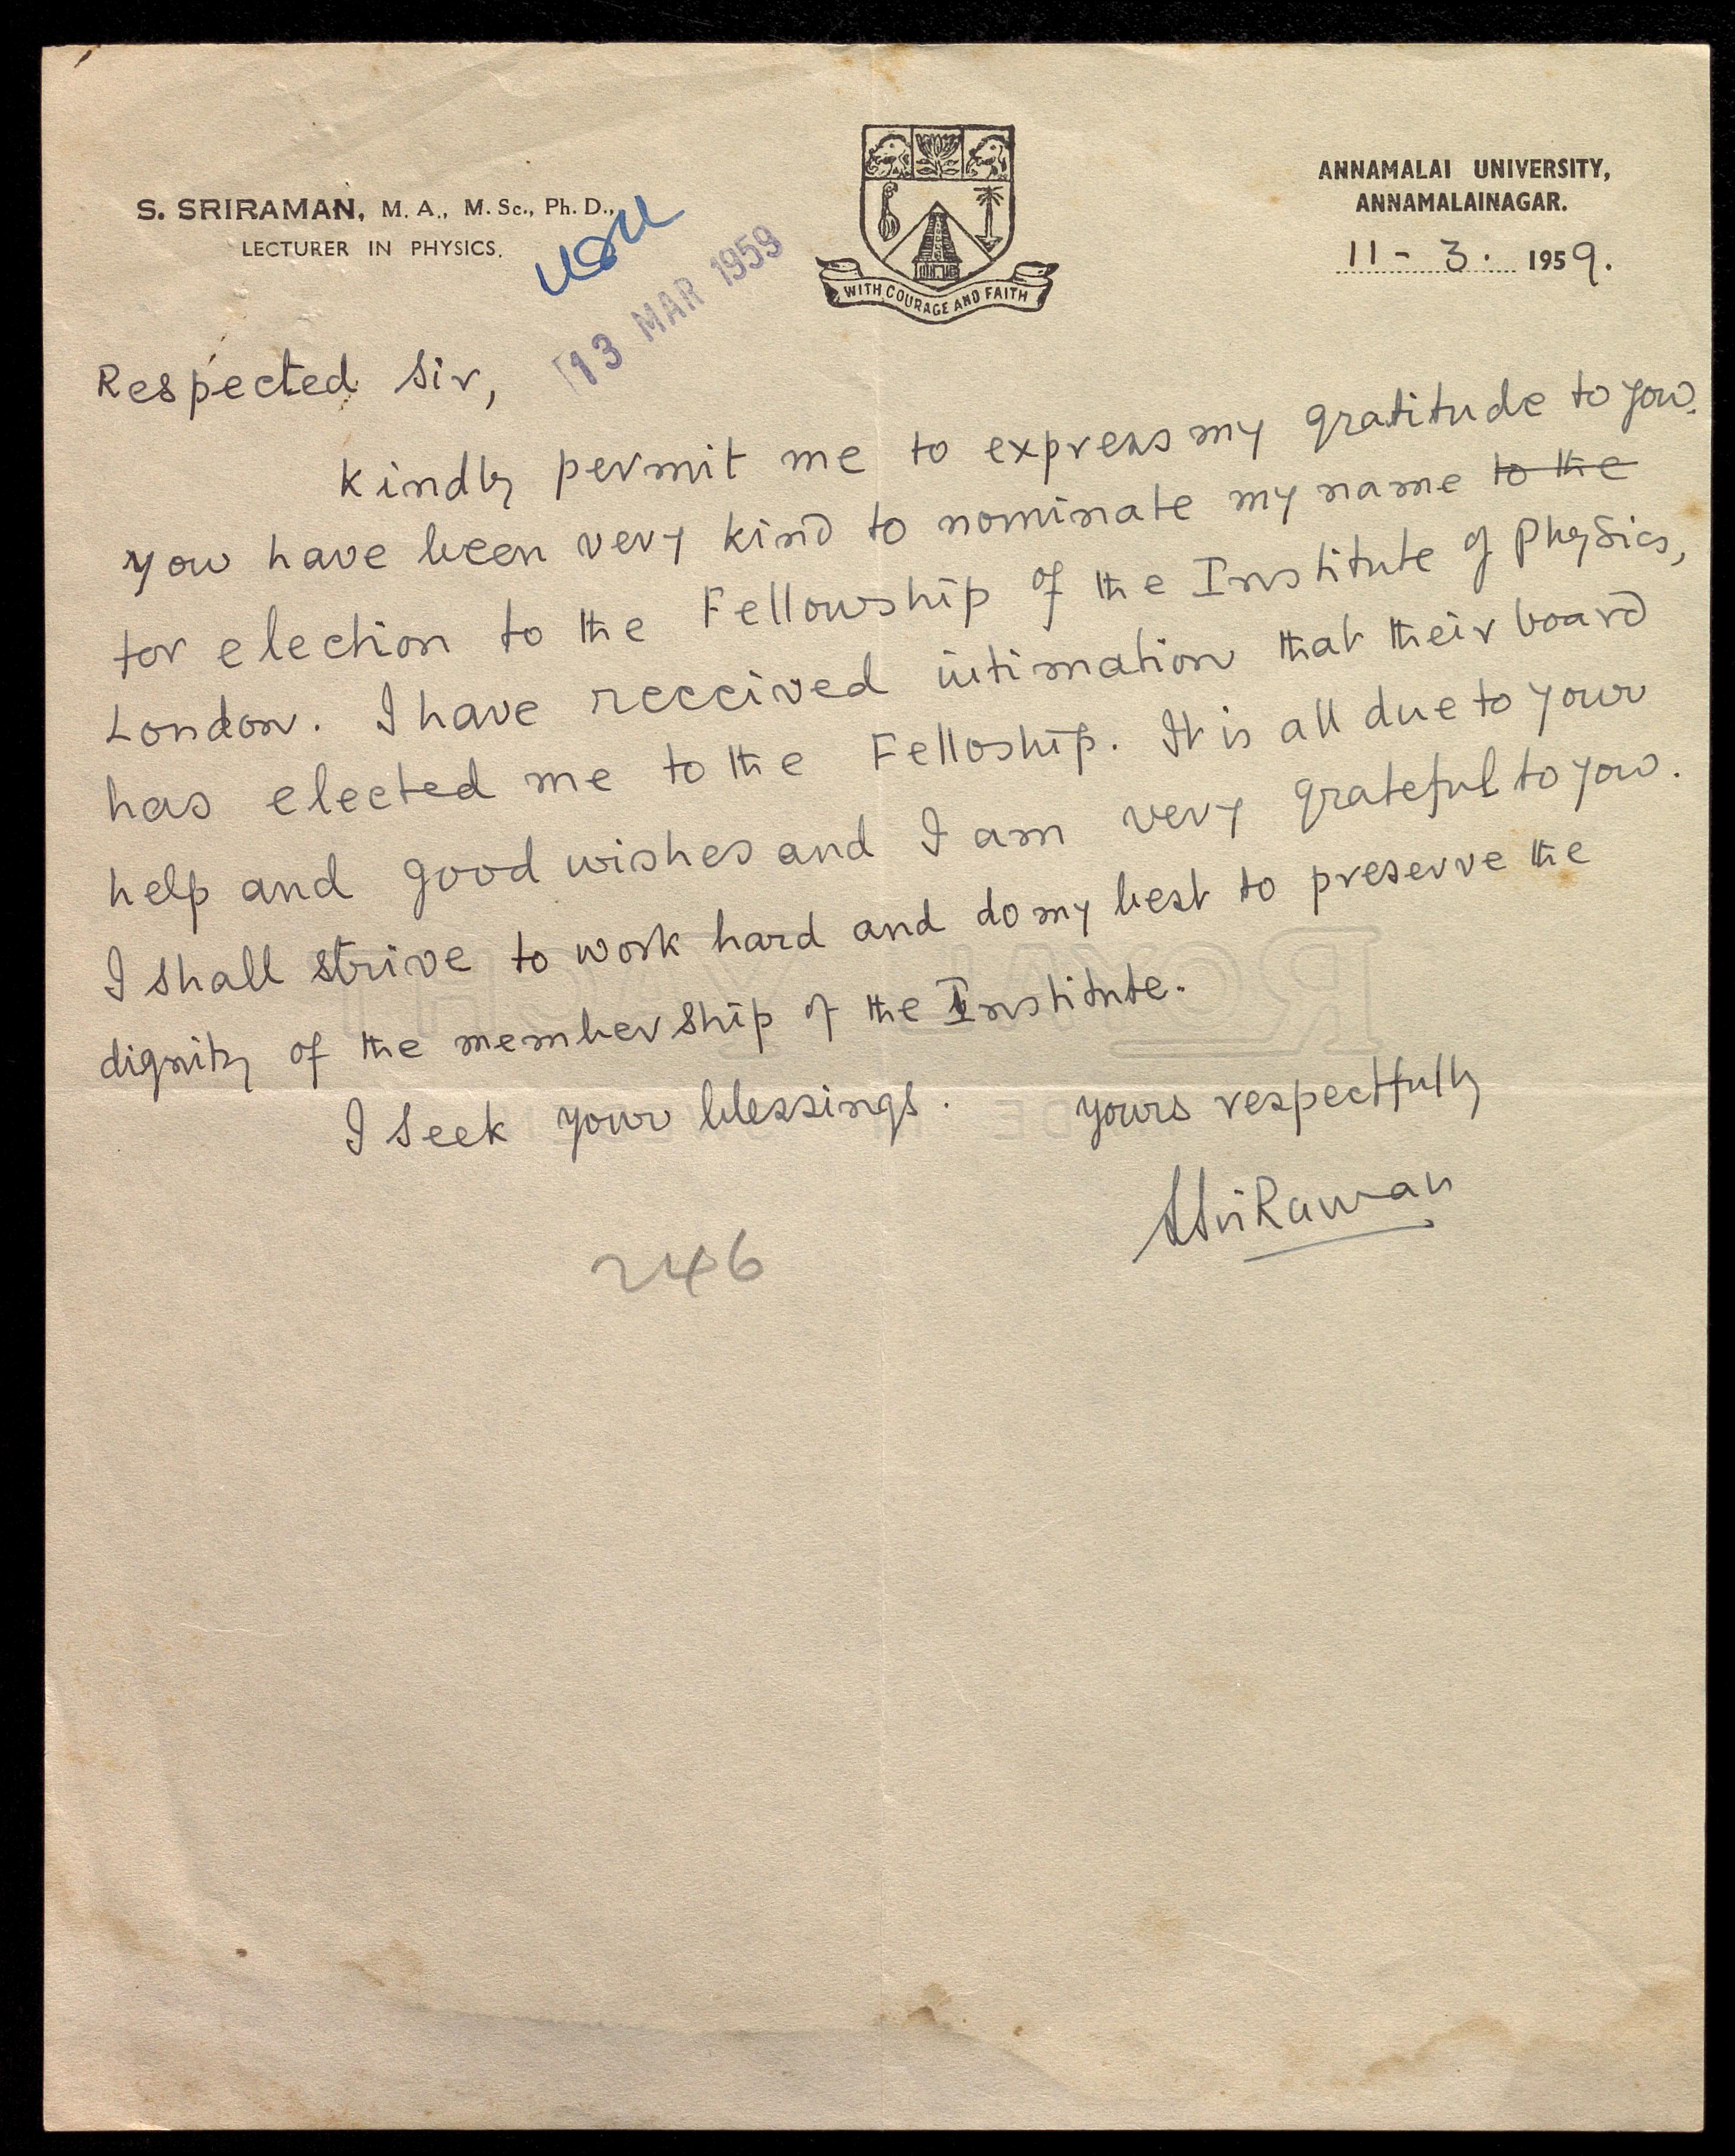 S. SRIRAMAN, M. A., M. Sc., Ph. D.,
LECTURER IN PHYSICS.
13 MAR 1959
WITH COURAGE AND FAITH
ANNAMALAI UNIVERSITY,
ANNAMALAINAGAR.
11 - 3. 1959.
Respected Sir,
Kindly permit me to express my gratitude to you.
You have been very kind to nominate my name to the
for election to the Fellowship of the Institute of Physics,
London. I have received intimation that their board
has elected me to the Felloship. It is all due to your
help and good wishes and I am very grateful to you.
I shall strive to work hard and do my best to preserve the
dignity of the membership of the Institute.
I seek your blessings.
yours respectfully
SSriRaman
246